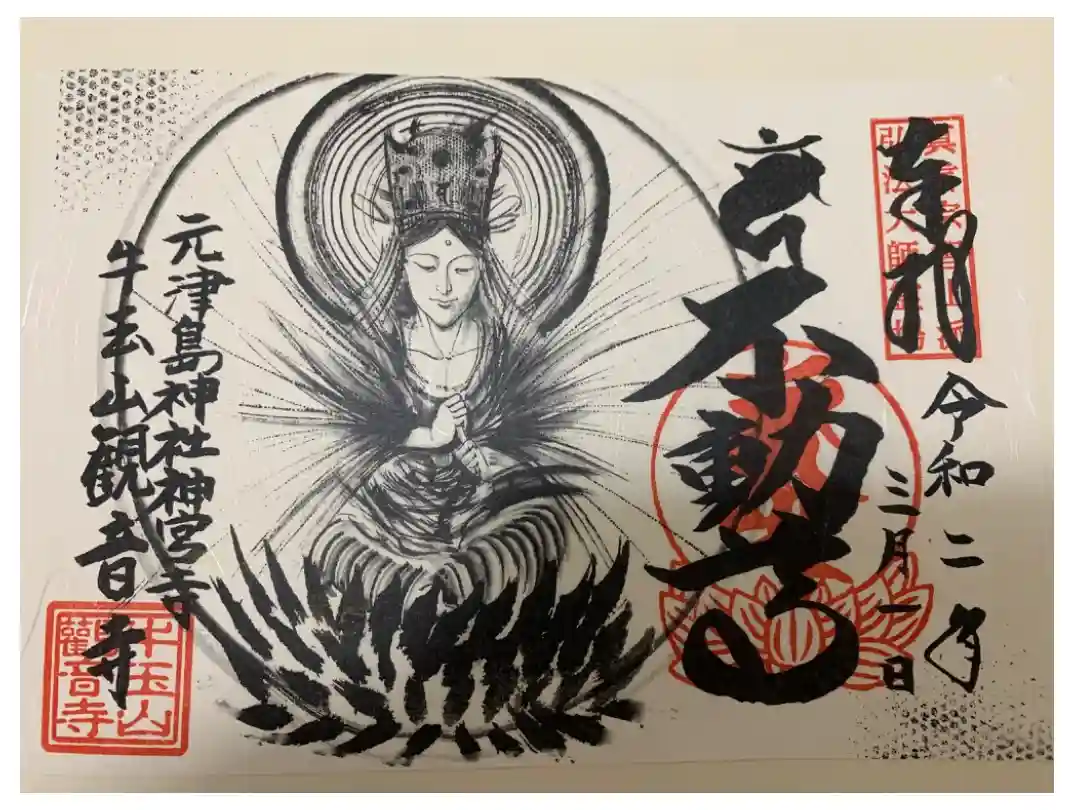 奉拝
弘法大師霊場
令和二年
三月一日
不動尊
元津島神社神宮寺
牛玉山觀音寺
牛玉山
觀音寺